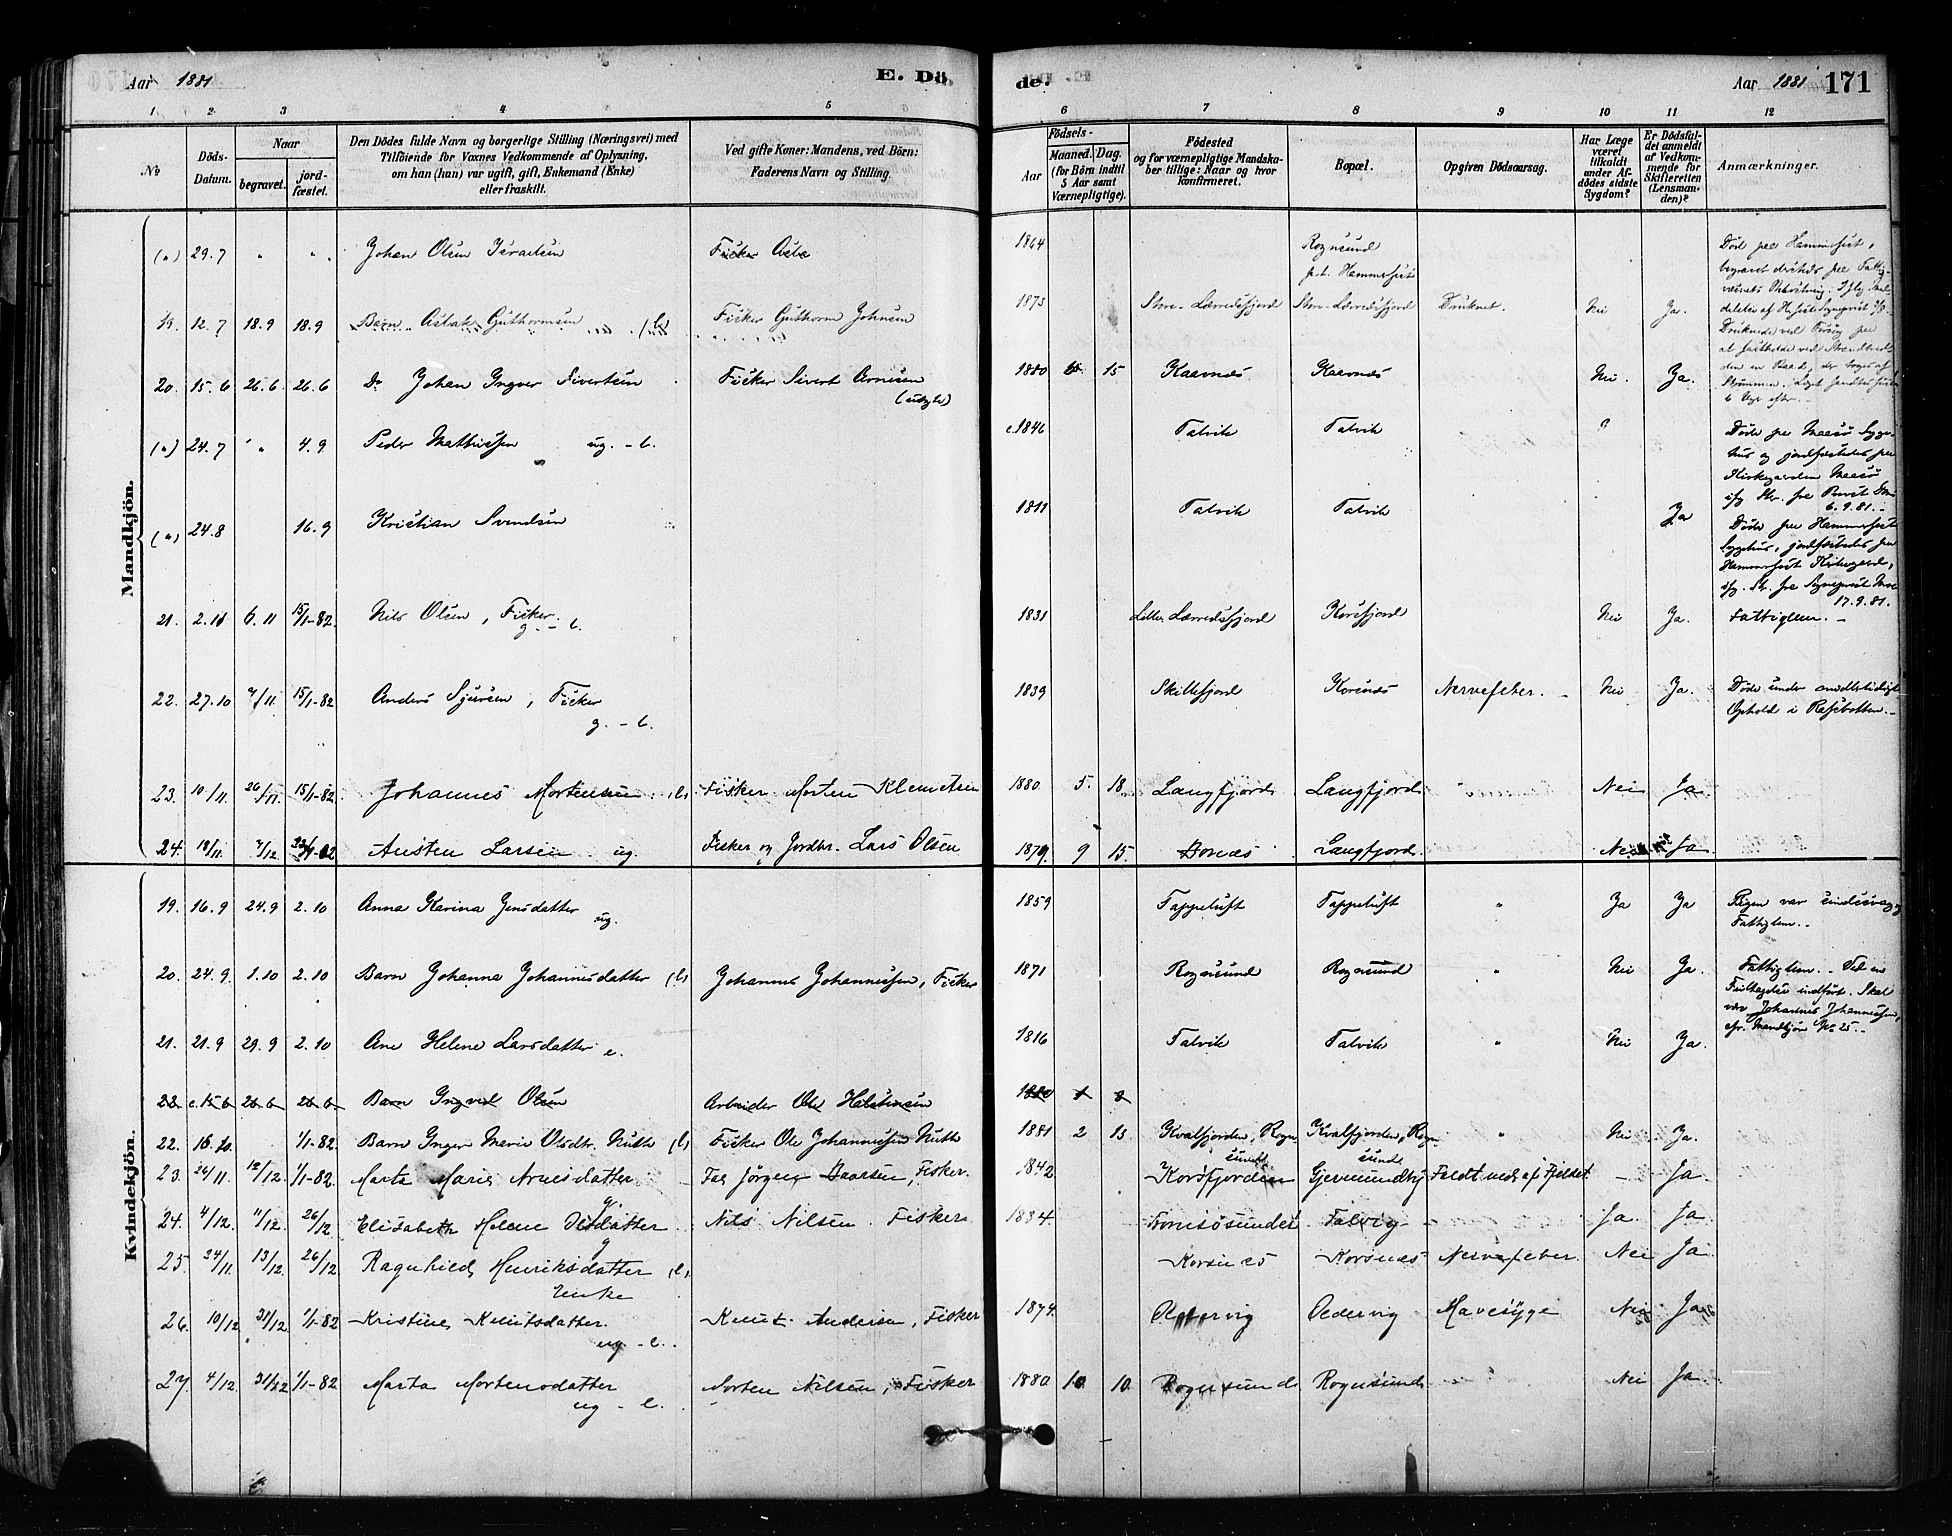 Aar 1881 E. Dö
de. Aar 1881 171
1 2 3 4 5 6 7 8 9 10 11 12
No Döds-Datum. Naar begravet. jordfæstet. Den Dödes fulde Navn og borgerlige Stilling (Næringsvei) med Tilföiende for Voxnes Vedkommende af Oplysning, om han (han) var ugift, gift, Enkemand (Enke) eller fraskilt. Ved gifte Koner: Mandens, ved Börn: Faderens Navn og Stilling.
Födsels- Aar Maaned. Dag. (for Börn indtil 5 Aar samt Værnepligtige). Födested og for værnepligtige Mandskaber tillige: Naar og hvor konfirmeret. Bopæl. Opgiven Dödsaarsag. Har Læge været tilkaldt under Afdödes sidste Sygdom? Er Dödsfaldet anmeldt af Vedkommende for Skifteretten (Lensmanden)? Anmærkninger.
Mandkjön.
(a) 29.7 " " Johan Olsen Israelsen Fisker 1864 Rognsund p.t. Hammerfest
19. 12.7 18.9 18.9 Barn Aslak Guthormsen (l) Fisker Guthorm Johnsen 1873 Store-Lærredsfjord Store-Lærredsfjord Druknet. Nei Ja.
20. 15.6 26.6 26.6 Do Johan Ingver Sivertsen Fisker Sivert Arnesen (udøbt) 1880 15 Kaavnæs Kaavnæs Nei. Ja.
(a) 24.7 " 4.9 Peder Mathisen ug. - l. c.1846 Talvik Talvik
(a) 24.8 16.9 Kristian Svendsen 1811 Talvik Talvik Ja
Døde paa Hammerfest Sygehus, jordfæstedes paa Hammerfest Kirkegaard, 17.9.81.
21. 2.11 6.11 15/1-82. Nils Olsen, Fisker g. - l. 1831 Lille Lærredsfjord Korsfjord Nei Ja. Fattiglem. -
22. 27.10 15/1-82 Anders Sjursen, Fisker g. - l. 1839 Skillefjord Korsnæs Nervefeber. - Nei Ja. Døde under midlertidigt Ophold i Rafsbotten. -
23. 10/11 26/11. 15/1-82. Johannes Mortensen (l) Fisker Morten Klemetsen 1880 5. 18. Langfjord Langfjord Nei Ja
24. 18/11. Austen Larsen ug. Fisker og Jordbr. Lars Olsen 1879. 9 15. Bognæs Langfjord Nei Ja
Kvindekjön.
19. 16.9 24.9 2.10 Anna Karina Jensdatter ug. 1859 Tappeluft Tappeluft " Ja Ja Pigen var sindssvag og Fattiglem. -
20. 24.9 1.10 2.10 Barn Johanna Johannesdatter (l) Johannes Johannessen, Fisker 1871 Rognsund Rognsund " Nei Ja. Fattiglem. - Ved en Feiltagelse indført. Skal være Johannes Johannessen, cfr. Mandkjøn No 25. -
21. 21.9 29.9 2.10 Ane Helene Larsdatter e. 1816 Talvik Talvik " Nei Ja.
22. c.15.6 26.6 26.6 Barn Ingval Olsen Arbeider Ole Halstensen 1880 1 8
22. 16.10 1/1-82. Barn Inger Marie Olsdtr. Kuth (l) Fisker Ole Johannessen Kuth 1881 2 13 Kvalfjorden, Rognsund Kvalfjorden, Rognsund " Nei Ja.
23. 26/11. 12/12. 1/1-82 Marta Marie Arnesdatter g. Jørgen Isaksen, Fisker. 1842 Korsfjorden Gjermundby Faldt ned af Fjeldet. - Ja.
24. 4/12. 11/12. 26/12 Elisabeth Helene Olsdatter g Nils Nilsen. Fisker 1834. Talvig Ja. Ja
25. 24/11. 13/12. 26/12 Ragnhild Henriksdatter (l) Enke Korsnæs Korsnæs Nervefeber. Nei Ja
26. 10/12 31/12 1/1-82 Kristine Knutsdatter. ug - l. Knut Andersen, Fisker 1874. Oldervig Oldervig Mavesyge Nei Ja
27. 4/12. 31/12 1/1-82 Marta Mortensdatter ug - l. Morten Nilsen, Fisker 1880 10. 10. Rognsund Rognsund Nei Ja